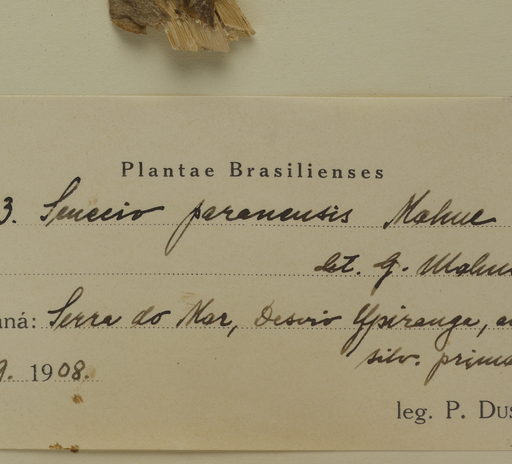 Plantae Brasilienses
3. Senecio paranensis Malme
det. G. Malme
ná: Serra do Mar, Desvio Ypiranga,
silv. prima
9. 1908.
leg. P. Dus